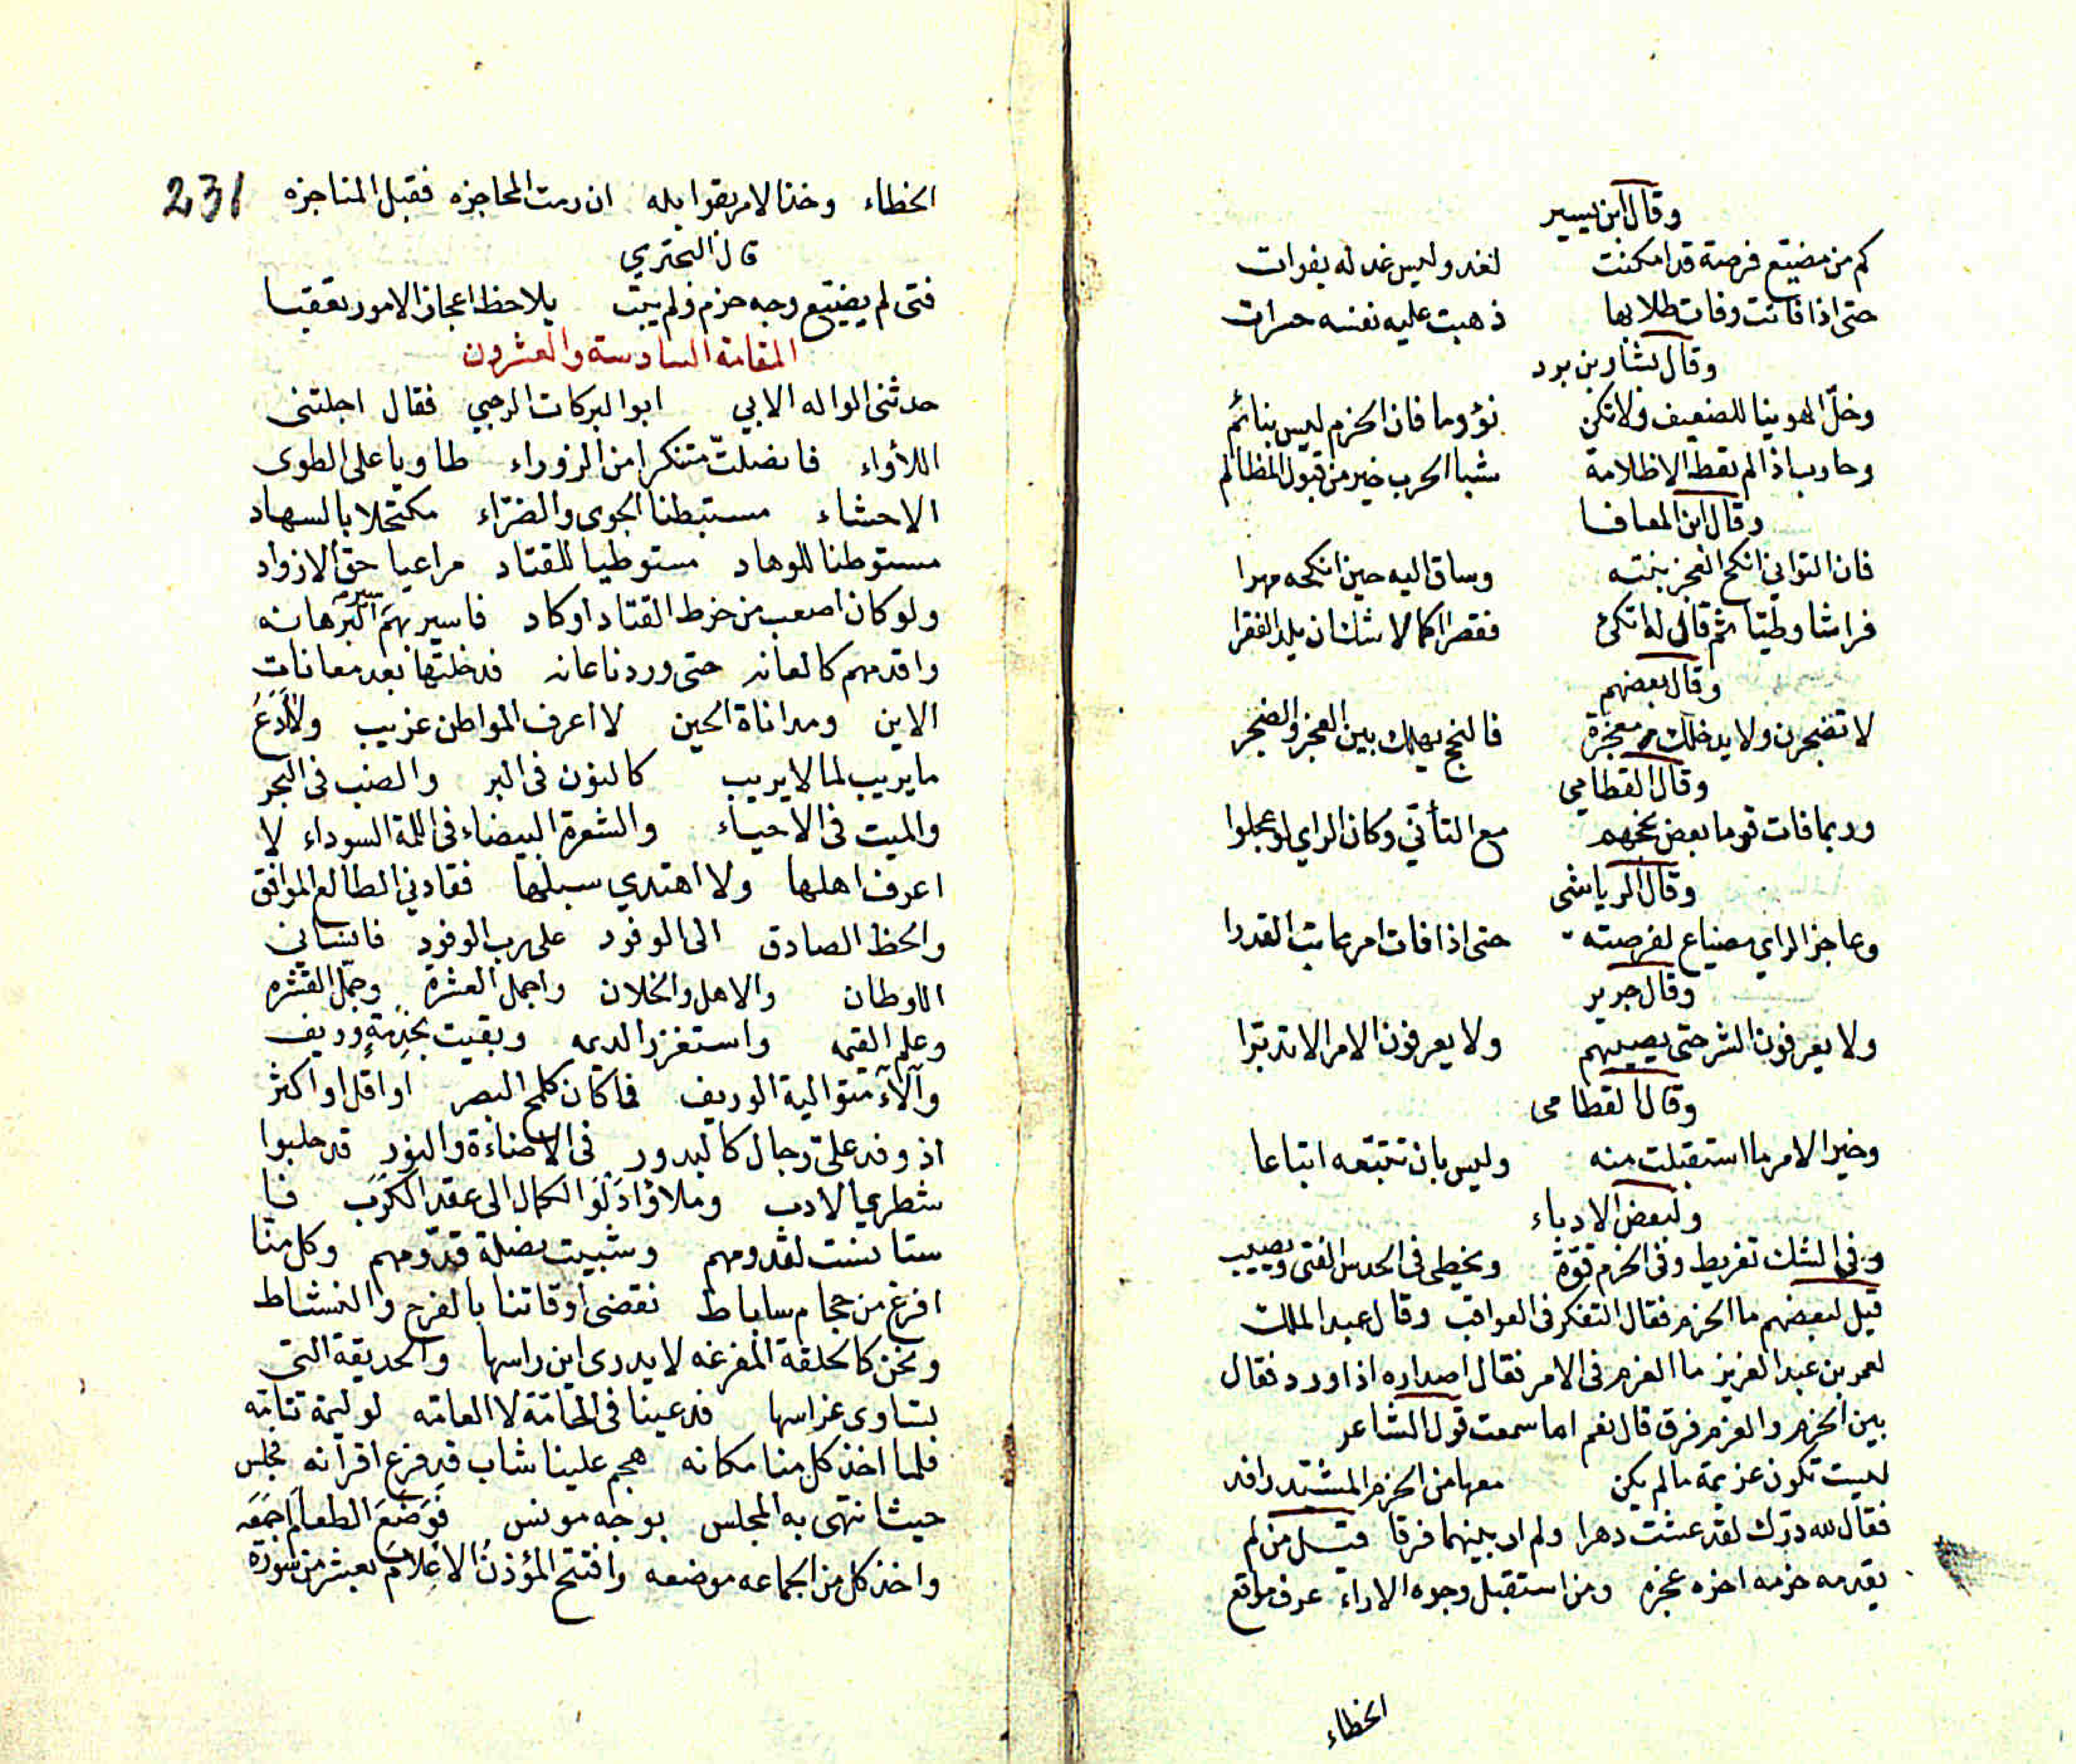 وقال ابن يسير
كم من مضيع فرصة قد امكنت لغد وليس غد له بفوات
حتى اذا فاتت وفات طلابها ذهبت عليه نفسه حسرات
وقال بشار بن برد
وخلّ الهوينا للضعيف ولا تكن نؤوما فان الحزم ليس بنائم
وحارب اذا لم تعط الا ظلامة شبا الحرب خير من قبول المظالم
وقال ابن المعافا
فان التواني انكح العجز بنته وساق اليه حين انكحه مهرا
فراشا وطيّا ثم قال له اتكئ فقصرا كما لا شك ان يلد الفقرا
وقال بعضهم
لا تضجرن ولا يدخلك معجزة فالنجح يهلك بين العجز والضجر
وقال القطامي
وربما فات قوما بعض نجحهم مع التأني وكان الراي لو عجلوا
وقال الرياشى
وعاجز الراي مضياع لفرصته حتى اذا فات امر عاتب القدرا
وقال جرير
ولا يعرفون الشر حتى يصيبهم ولا يعرفون الامر الا تدبّرا
وقال القطامى
وخير الامر ما استقبلت منه وليس بان تتبعه اتباعا
ولبعض الادباء
وفى الشك تفريط وفى الحزم قوّة ويخطى فى الحدس الفتى ويصيب
قيل لبعضهم ما الحزم فقال التفكر فى العواقب وقال عبد الملك
لعمر بن عبد العزيز ما العزم فى الامر فقال اصداره اذا ورد فقال
بين الحزم والعزم فرق قال نعم اما سمعت قول الشاعر
ليست تكون عزيمة ما لم يكن معها من الحزم المشتد رافد
فقال لله درّك لقد عشت دهرا ولم ار بينهما فرقا من لم
يقدمه حزمه اخره عجزه ومن استقبل وجوه الاراء عرف مواقع
الخطاء
231
الخطاء وخذ الامر بقوابله ان رمت المحاجزه فقبل المناجزه
قال البحتري
فتى لم يضيّع وجه حزم ولم يبت يلاحظ اعجاز الامور تعقبا
المقامة السادسة والعشرون
حدثنى الواله الابي ابو البركات الرحبي فقال اجلتنى
اللأواء متنكرا من الزوراء طاويا على الطوى
الاحشاء مستبطنا الجوى والضرّاء مكتحلا بالسهاد
مستوطنا للوهاد مستوطيا للقتاد مراعيا حق الازواد
ولو كان اصعب من خرط القتاد او كاد فاسير بهم
واقدمهم كالعانه حتى وردنا عانه فدخلتها بعد معانات
الاين ومداناة الحين لا اعرف المواطن غريب ولا ادع
ما يريب لما لا يريب كالنون فى البر والضب فى البحر
والميت فى الاحياء والشعرة البيضاء فى اللمة السوداء لا
اعرف اهلها ولا اهتدي سبلها فقادني الطالع الموافق
والحظ الصادق الى الوفود على رب الوفود فانساني
الاوطان والاهل والخلان واجمل العشرة وجمّل القشره
وعلم القيمه واستغزر الديمه وبقيت وريف
وآلاء متوالية الوريف فما كان كلمح البصر او اقل او اكثر
اذ وفد علىّ رجال كالبدور فى الاضاءة والنور قد حلبوا
شطري الادب وملاؤا دلو الكمال الى عقد الكرب
ستانست لقدومهم قدّومهم وكل منّا
افرغ من حجام ساباط نقضى اوقاتنا بالفرح والنشاط
ونحن كالحلقة المفرغه لا يدرى اين راسها والحديقة التى
تساوى غراسها فدعينا فى الخاصّة لا العامّه لوليمة تتامّه
فلما اخذ كل منا مكانه هجم علينا شاب قد فرع اقرانه فجلس
حيث انتهى به المجلس بوجه مونس فوضع الطعام اجمعه
واخذ كل من الجماعه موضعه وافتتح المؤذن الاعلام بعشر من سورة